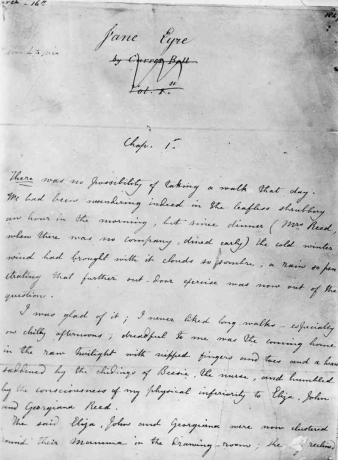 Jane Eyre
by Currer Bell
Vol. 1st
Chap. 1.
There was no possibility of taking a walk that day.
We had been wandering indeed in the leafless shrubbery
an hour in the morning, but since dinner (Mrs Reed,
when there was no company, dined early) the cold winter
wind had brought with it clouds so sombre, a rain so pene-
trating that further out-door exercise was now out of the
question.
I was glad of it; I never liked long walks - especially
on chilly afternoons; dreadful to me was the coming home
in the raw twilight with nipped fingers and toes and a heart
saddened by the chidings of Bessie, the nurse, and humbled
by the consciousness of my physical inferiority to Eliza, John
and Georgiana Reed.
The said Eliza, John and Georgiana were now clustered
round their Mamma in the drawing-room; she reclined